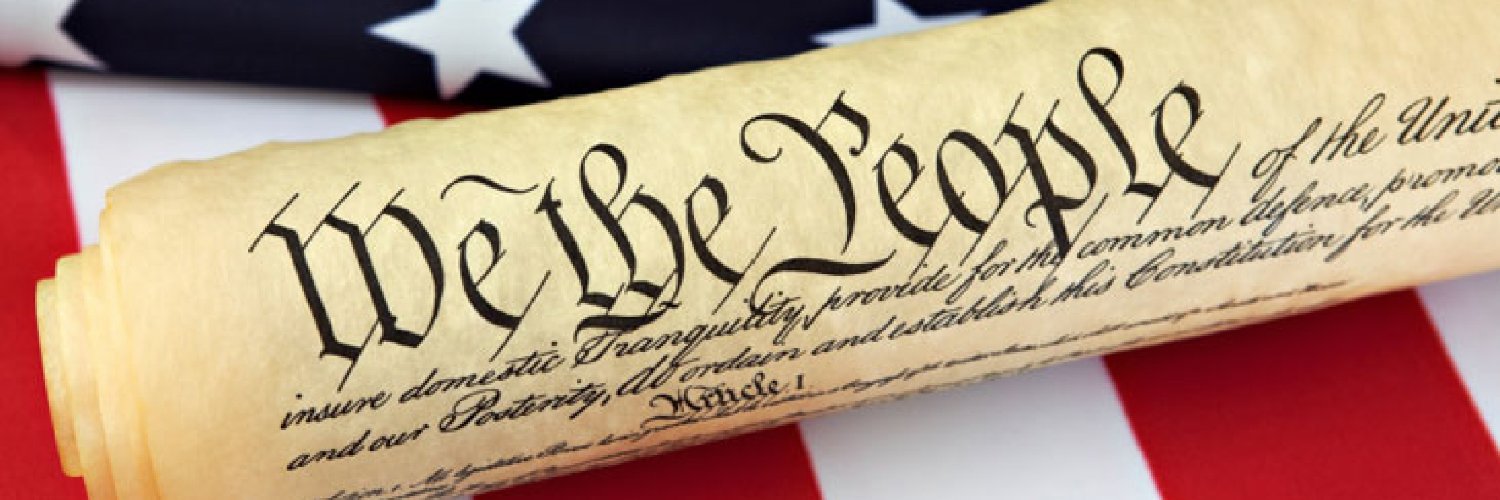 We the People of the Unit
insure domestic Tranquility, provide for the common defence, promo
and our Posterity, do ordain and establish this Constitution for the Un
Article. I